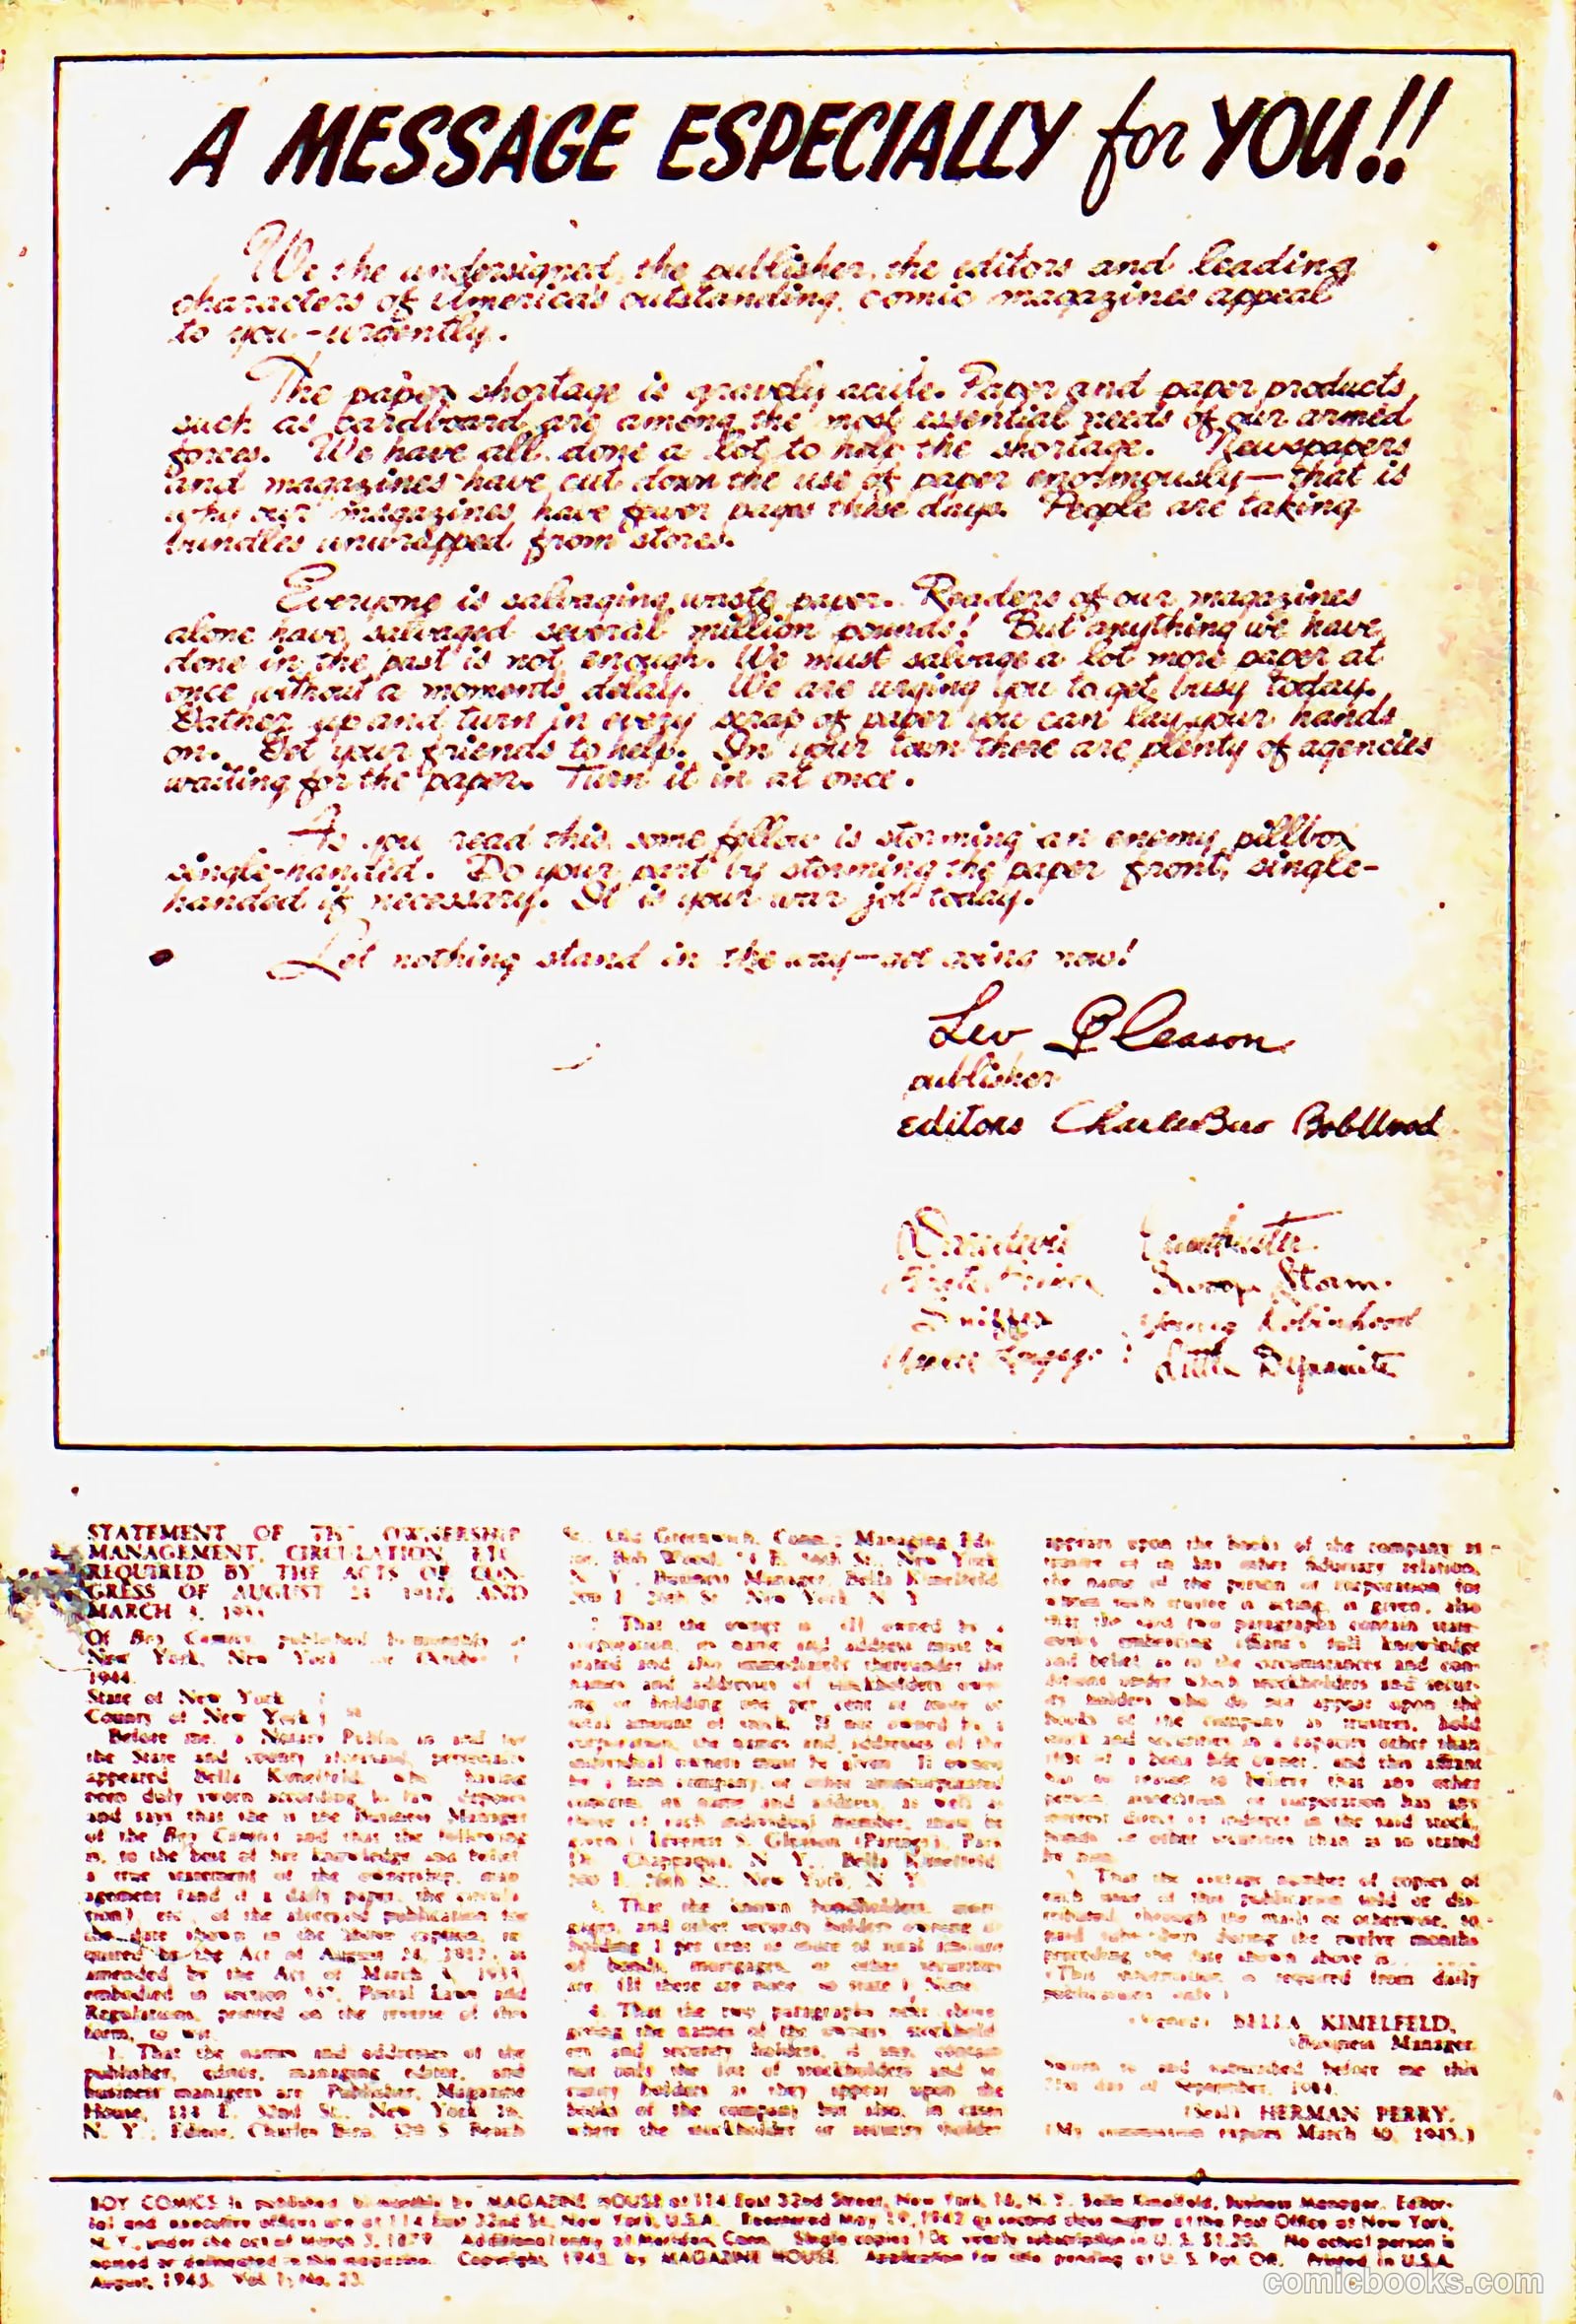 A MESSAGE ESPECIALLY for YOU!!
We the undersigned, the publisher, the editors and leading
characters of America's outstanding comic magazines appeal
to you - urgently.
The paper shortage is gravely acute. Paper and paper products
such as cardboard are among the most essential needs of our armed
forces. We have all done a lot to help the shortage. Newspapers
and magazines have cut down the use of paper enormously — that is
why our magazines have fewer pages these days. People are taking
bundles unwrapped from stores.
Everyone is salvaging waste paper. Readers of our magazines
alone have salvaged several million pounds! But anything we have
done in the past is not enough. We must salvage a lot more paper at
once without a moments delay. We are urging you to get busy today.
Gather up and turn in every scrap of paper you can lay your hands
on. Get your friends to help. In your town there are plenty of agencies
waiting for the paper. Turn it in at once.
As you read this, some fellow is storming an enemy pillbox
single-handed. Do your part by storming the paper front, single-
handed if necessary. It is your war job today.
Let nothing stand in the way — get going now!
Lev Gleason
publisher
editors Charles Biro Bob Wood
Daredevil Crimebuster
Swoop Storm
Sniffer Young Robinhood
Little Dynamite
STATEMENT OF THE OWNERSHIP
MANAGEMENT, CIRCULATION, ETC.
REQUIRED BY THE ACTS OF CON-
GRESS OF AUGUST 24 1912, AND
MARCH 3, 1933
Of Boy Comics, published bi-monthly at
New York, New York for October 1
1944.
State of New York
County of New York
Before me, a Notary Public in and for
the State and county aforesaid, personally
appeared Bella Kimelfeld, who having
been duly sworn according to law, deposes
and says that she is the Business Manager
of the Boy Comics and that the following
is, to the best of her knowledge and belief
a true statement of the ownership, man-
agement (and if a daily paper, the circula-
tion), etc., of the aforesaid publication for
the date shown in the above caption, re-
quired by the Act of August 24, 1912, as
amended by the Act of March 3, 1933,
embodied in section 537, Postal Laws and
Regulations, printed on the reverse of this
form, to wit:
1. That the names and addresses of the
publisher, editor, managing editor, and
business managers are Publisher, Magazine
House, 114 E. 32nd St., New York 16,
N. Y.; Editor, Charles Biro, S. Beach
Old Greenwich, Conn.; Managing Edi-
tor, Bob Wood, E. St., New York
N. Y.; Business Manager, Bella Kimelfeld
E. 26th St., New York, N. Y.
2. That the owner is: (If owned by a
corporation, its name and address must be
stated and also immediately thereunder the
names and addresses of stockholders own-
ing or holding one per cent or more of
total amount of stock. If not owned by a
corporation, the names and addresses of the
individual owners must be given. If owned
by a firm, company, or other unincorporated
concern, its name and address, as well as
those of each individual member, must be
given.) Leverett S. Gleason (Partner), Park
Dr., Chappaqua, N. Y.; Bella Kimelfeld
E. 26th St., New York, N. Y.
3. That the known bondholders, mort-
gagees, and other security holders owning or
holding 1 per cent or more of total amount
of bonds, mortgages, or other securities
are: (If there are none, so state.) None.
4. That the two paragraphs next above
giving the names of the owners, stockhold-
ers and security holders, if any, contain
not only the list of stockholders and se-
curity holders as they appear upon the
books of the company but also, in cases
where the stockholder or security holder
appears upon the books of the company as
trustee or in any other fiduciary relation,
the name of the person or corporation for
whom such trustee is acting, is given; also
that the said two paragraphs contain state-
ments embracing affiant's full knowledge
and belief as to the circumstances and con-
ditions under which stockholders and secur-
ity holders who do not appear upon the
books of the company as trustees, hold
stock and securities in a capacity other than
that of a bona fide owner; and this affiant
has no reason to believe that any other
person, association, or corporation has any
interest direct or indirect in the said stock,
bonds or other securities than as so stated
by
5. That the average number of copies of
each issue of this publication sold or dis-
tributed, through the mails or otherwise, to
paid subscribers during the twelve months
preceding the date shown above is
(This information is required from daily
publications only.)
(Signed) BELLA KIMELFELD,
Business Manager.
Sworn to and subscribed before me this
21st day of September, 1944.
(Seal) HERMAN PERRY.
(My commission expires March 30, 1945.)
BOY COMICS is published bi-monthly by MAGAZINE HOUSE at 114 East 32nd Street, New York, 16, N. Y. Bella Kimelfeld, Business Manager. Editor-
ial and executive offices are at 114 East 32nd St., New York, U.S.A. Reentered May 19, 1942 as second class matter at the Post Office at New York,
N. Y., under the act of March 3, 1879. Additional entry at Meriden, Conn. Single copies 10c yearly subscription in U. S. $1.20. No actual person is
named or delineated in this magazine. Copyright, 1945 by MAGAZINE HOUSE. Application for title pending at U. S. Pat. Off. Printed in U.S.A.
August, 1945. Vol. 1; No. 23
comicbooks.com